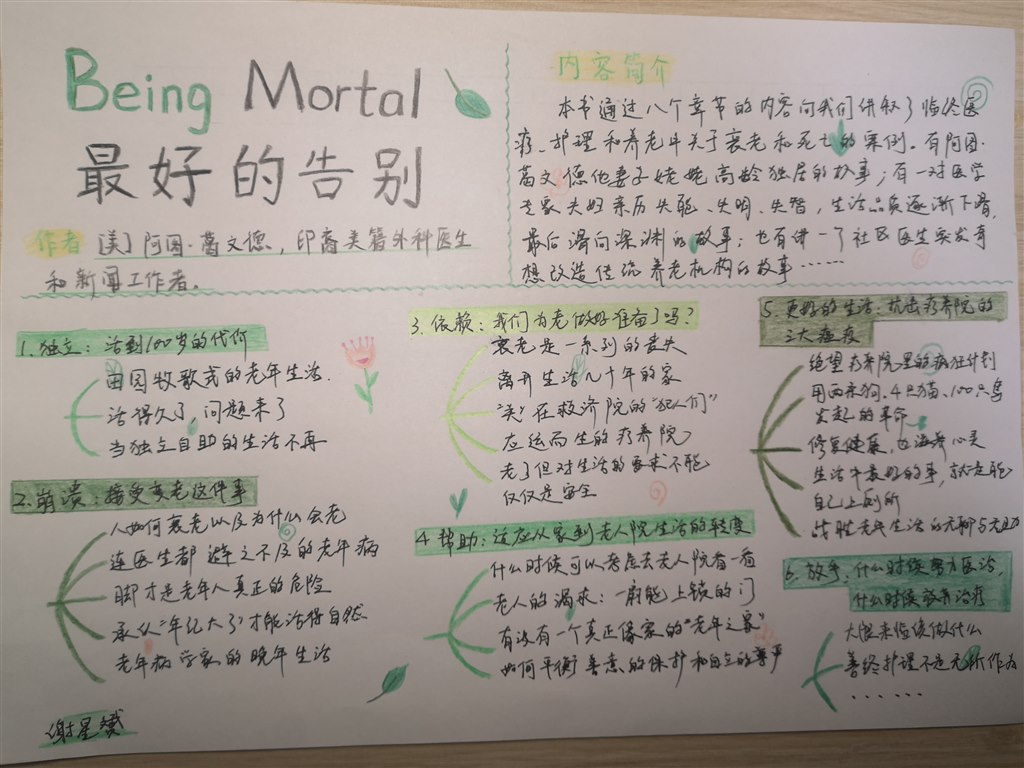 Being Mortal
最好的告别
作者 [美]阿图·葛文德，印裔美籍外科医生
和新闻工作者。
内容简介
本书通过八个章节的内容向我们讲叙了临终医
疗、护理和养老中关于衰老和死亡的案例。有阿图·
葛文德他妻子姥姥高龄独居的故事；有一对医学
专家夫妇亲历失聪、失明、失智，生活品质逐渐下滑，
最后滑向深渊的故事；也有讲一了社区医生突发奇
想改造传统养老机构的故事……
1.独立：活到100岁的代价
田园牧歌式的老年生活.
活得久了，问题来了
当独立自助的生活不再
2.崩溃：接受变老这件事
人如何衰老以及为什么会老
连医生都避之不及的老年病
脚才是老年人真正的危险
承认“年纪大了”才能活得自然
老年病学家的晚年生活
3.依赖：我们为老做好准备了吗？
衰老是一系列的丧失
离开生活几十年的家
“关”在救济院的“犯人们”
应运而生的疗养院
老了但对生活的要求不能
仅仅是安全
4.帮助：适应从家到老人院生活的转变
什么时候可以考虑去老人院看一看
老人的渴求：一扇能上锁的门
有没有一个真正像家的“老年之家”
如何平衡善意的保护和自立的尊严
5.更好的生活：抗击疗养院的
三大瘟疫
绝望疗养院里的疯狂计划
用两条狗、4只猫、100只鸟
发起的革命
修复健康，也滋养心灵
生活中最好的事，就是能
自己上厕所
战胜老年生活的无聊与无助
6.放手：什么时候努力医治，
什么时候放弃治疗
大限来临该做什么
善终护理不是无所作为
......
谢星